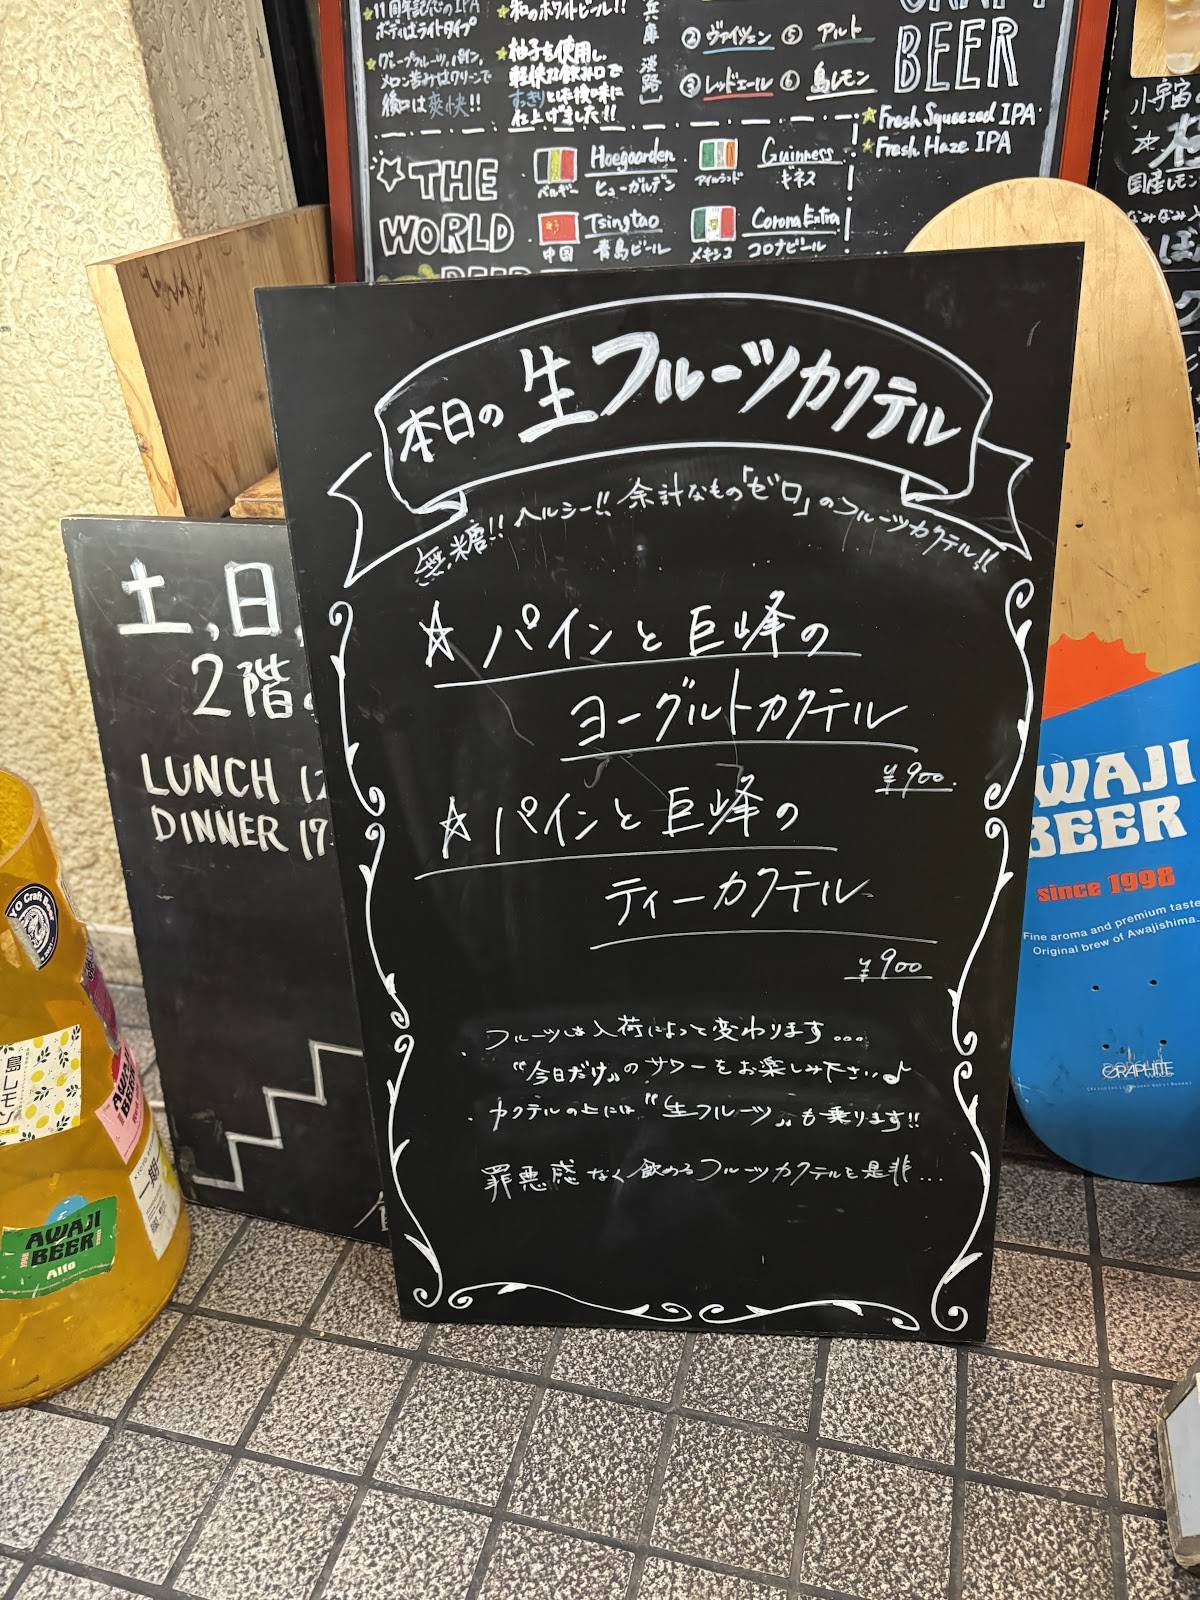 ★11周年記念のIPA
ボディはライトタイプ
★グレープフルーツ、パイン、
メロン 苦みはクリーンで
後口は爽快!!
★和のホワイトビール!!
★柚子を使用し、
軽快な飲み口で
すっきりとした後味に
仕上げました!!
兵庫 淡路]
② ヴァイツェン ⑤ アルト
③ レッドエール ⑥ 島レモン
CRAFT
BEER
★Fresh Squeezed IPA
★Fresh Haze IPA
☆THE
WORLD
BEER
ベルギー Hoegaarden ヒューガルデン
アイルランド Guinness ギネス
中国 Tsingtao 青島ビール
メキシコ Corona Extra コロナビール
小宇宙の
国産レモン
本日の生フルーツカクテル
無糖!! ヘルシー!! 余計なもの「ゼロ」のフルーツカクテル!!
☆パインと巨峰の
ヨーグルトカクテル
¥900.
☆パインと巨峰の
ティーカクテル
¥900
・フルーツは入荷によって変わります...
“今日だけ”のサワーをお楽しみ下さい♪
・カクテルの上には“生フルーツ”も乗ります!!
罪悪感なく飲めるフルーツカクテルを是非...
土,日,
2階
LUNCH 12
DINNER 17
AWAJI
BEER
since 1998
Fine aroma and premium taste
Original brew of Awajishima.
GRAPHITE
YO Craft Beer
島レモン
AWAJI
BEER
AWAJI
BEER
Alto